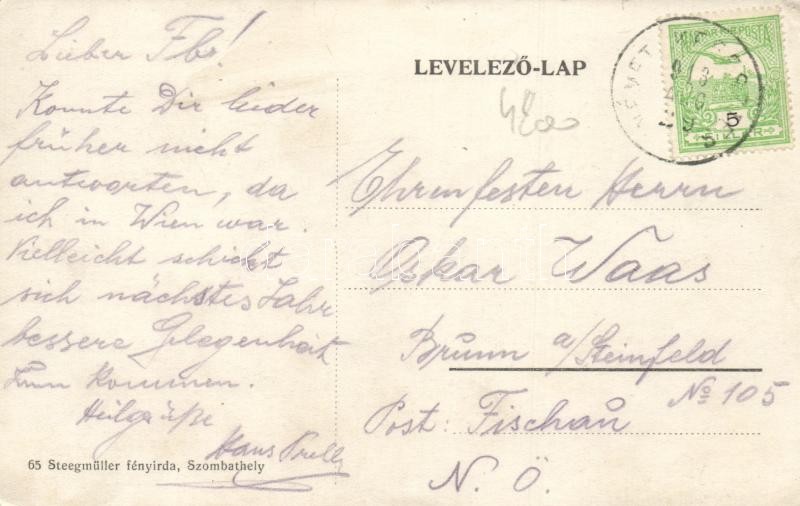 Lieber Fbr!
Konnte Dir leider
früher nicht
antworten, da
ich in Wien war.
Vielleicht schickt
sich nächstes Jahr
bessere Gelegenheit
zum Kommen.
Heilgrüße
Hans
65 Steegmüller fényirda, Szombathely
LEVELEZŐ-LAP
Ehrenfesten Herrn
Oskar Waas
Brunn a/Steinfeld
No 105
Post: Fischau
N. Ö.
5